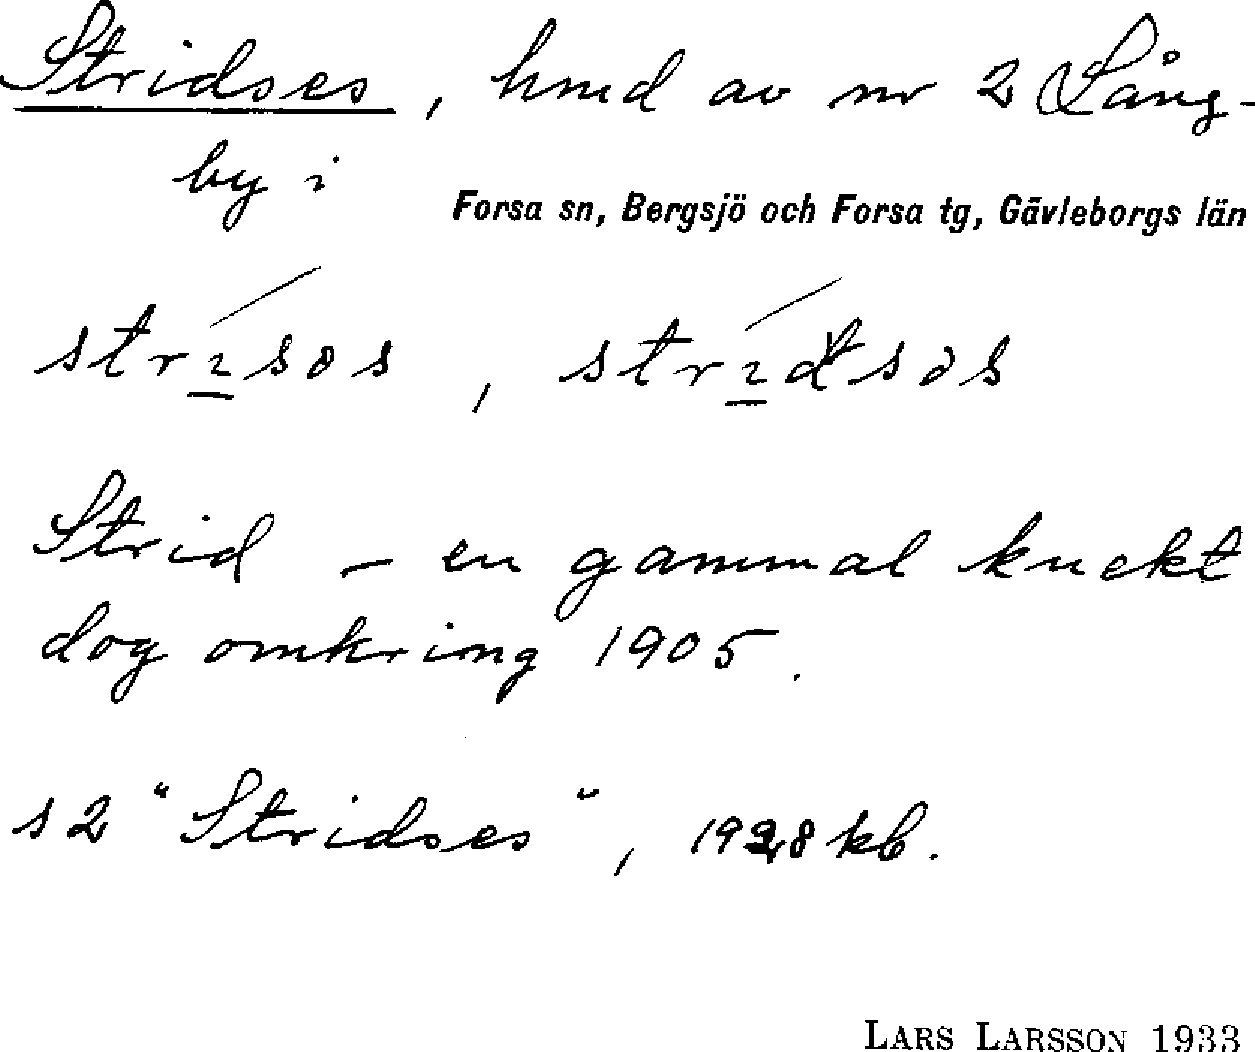 Stridses, hmd av nr 2 Lång-
by i
Forsa sn, Bergsjö och Forsa tg, Gävleborgs län
strisəs, stridsəs
Strid – en gammal knekt
dog omkring 1905.
s 2 "Stridses", 1928 kb.
LARS LARSSON 1933